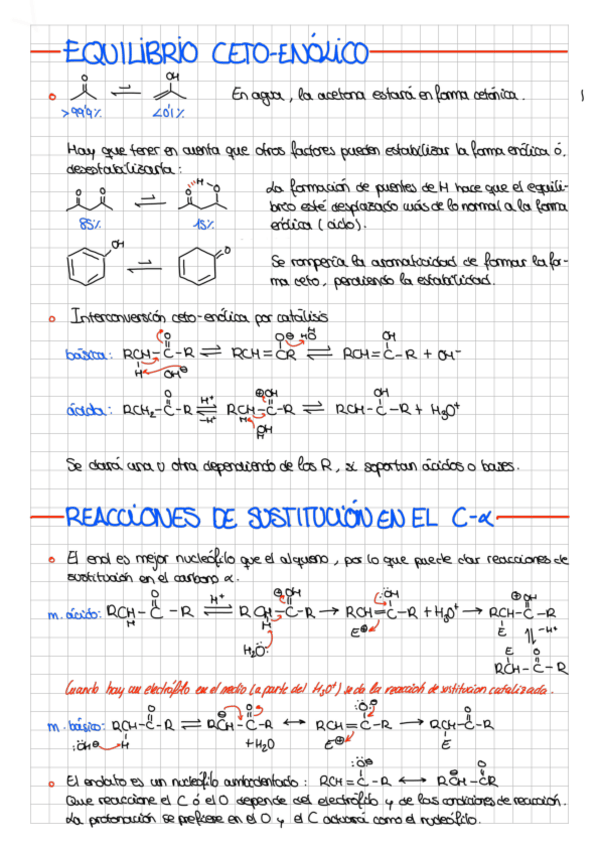 EQUILIBRIO CETO-ENÓLICO
O OH
En agua, la acetona estará en forma cetónica.
>99'9% <0'1%
Hay que tener en cuenta que otros factores pueden estabilizar la forma enólica ó
desestabilizarla:
O O ⇌ O H O
La formación de puentes de H hace que el equili-
brio esté desplazado más de lo normal a la forma
enólica (ciclo).
85% 15%
OH ⇌ O
Se rompería la aromaticidad de formar la for-
ma ceto, perdiendo la estabilidad.
Interconversión ceto-enólica por catálisis
básica: RCH-C-R ⇌ RCH=CR ⇌ RCH=C-R + OH⁻
ácida: RCH₂-C-R ⇌ RCH-C-R ⇌ RCH-C-R + H₃O⁺
Se dará una u otra dependiendo de los R, si soportan ácidos o bases.
REACCIONES DE SUSTITUCIÓN EN EL C-α
El enol es mejor nucleófilo que el alqueno, por lo que puede dar reacciones de
sustitución en el carbono α.
m. ácido: RCH-C-R ⇌ RCH-C-R → RCH=C-R + H₃O⁺ → RCH-C-R
H₂O: E⊕ E ⇌ -H⁺
E O
RCH-C-R
Cuando hay un electrófilo en el medio (a parte del H₃O⁺) se da la reacción de sustitución catalizada.
m. básico: RCH-C-R ⇌ RCH-C-R ↔ RCH=C-R → RCH-C-R
:OH⊖ H +H₂O E⊕ E
El enolato es un nucleófilo ambidentado: RCH=C-R ↔ RCH-CR
Que reaccione el C ó el O depende del electrófilo y de las condiciones de reacción.
La protonación se prefiere en el O y el C actuará como el nucleófilo.